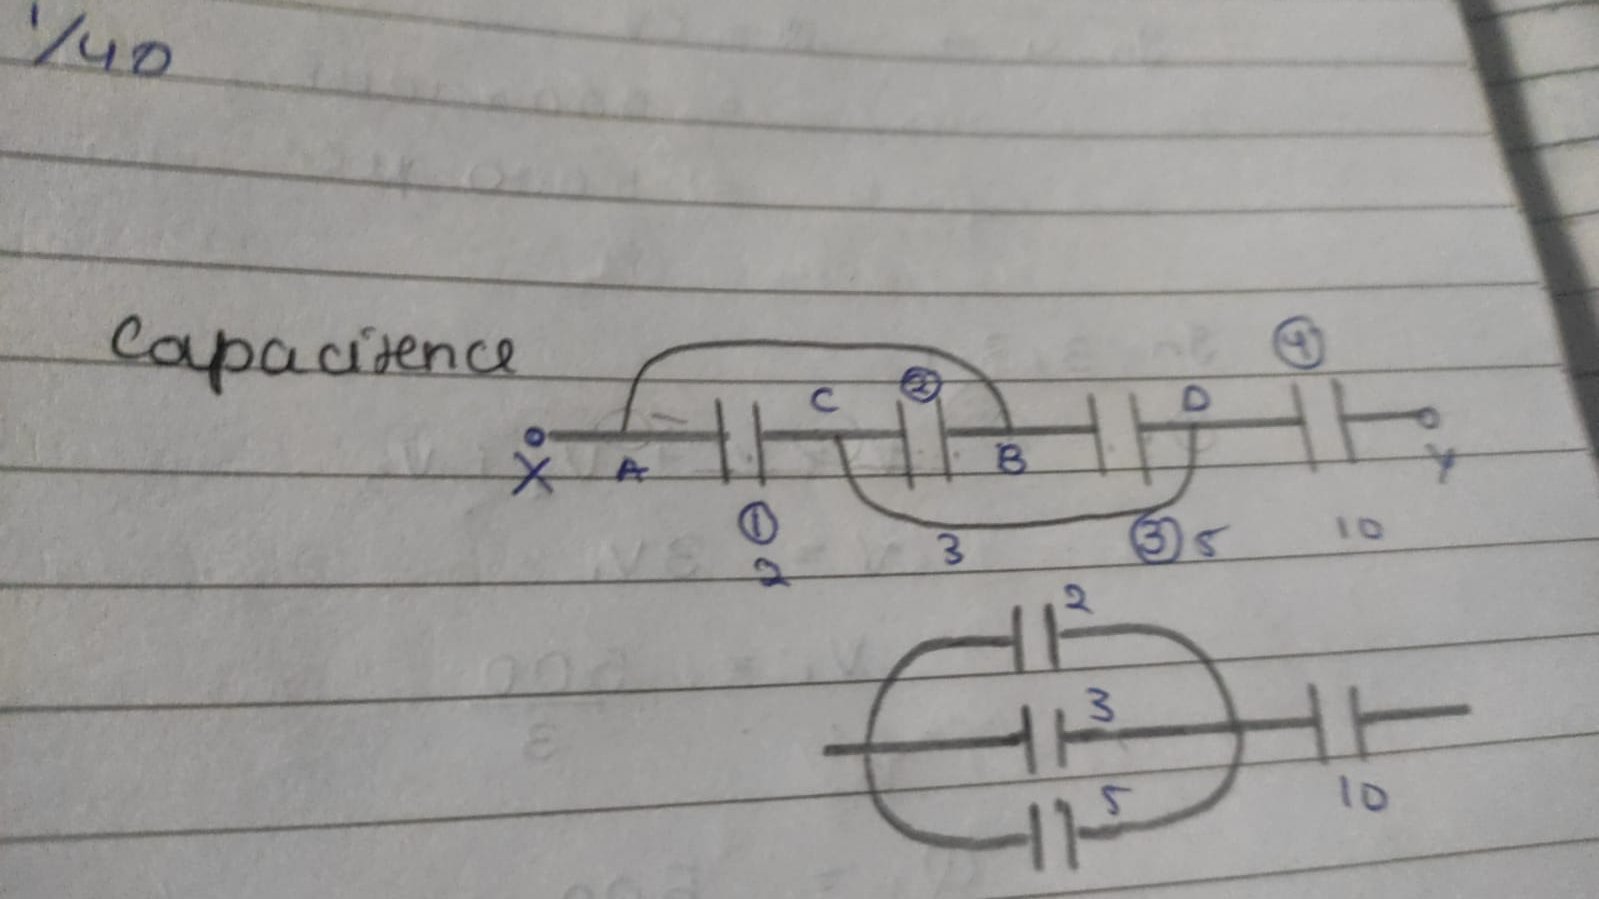 1/40
Capacitence
④
C ② D
X A B Y
① 3 ③ 5 10
2
2
3
5 10